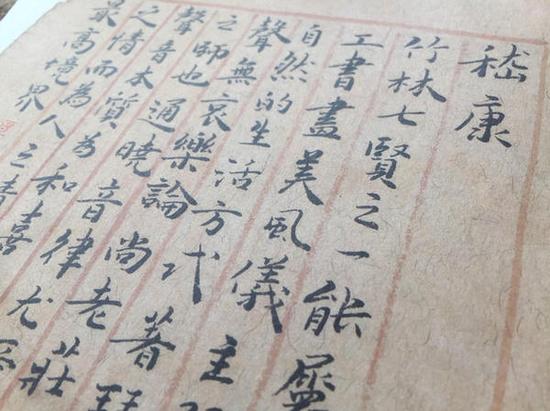 嵇康
竹林七賢之一能屬
工書畫美風儀主
自然的生活方式著
聲無哀樂論尚老莊
之師也通曉音律尤
聲音本質為和
之情而為人之喜
最高境界